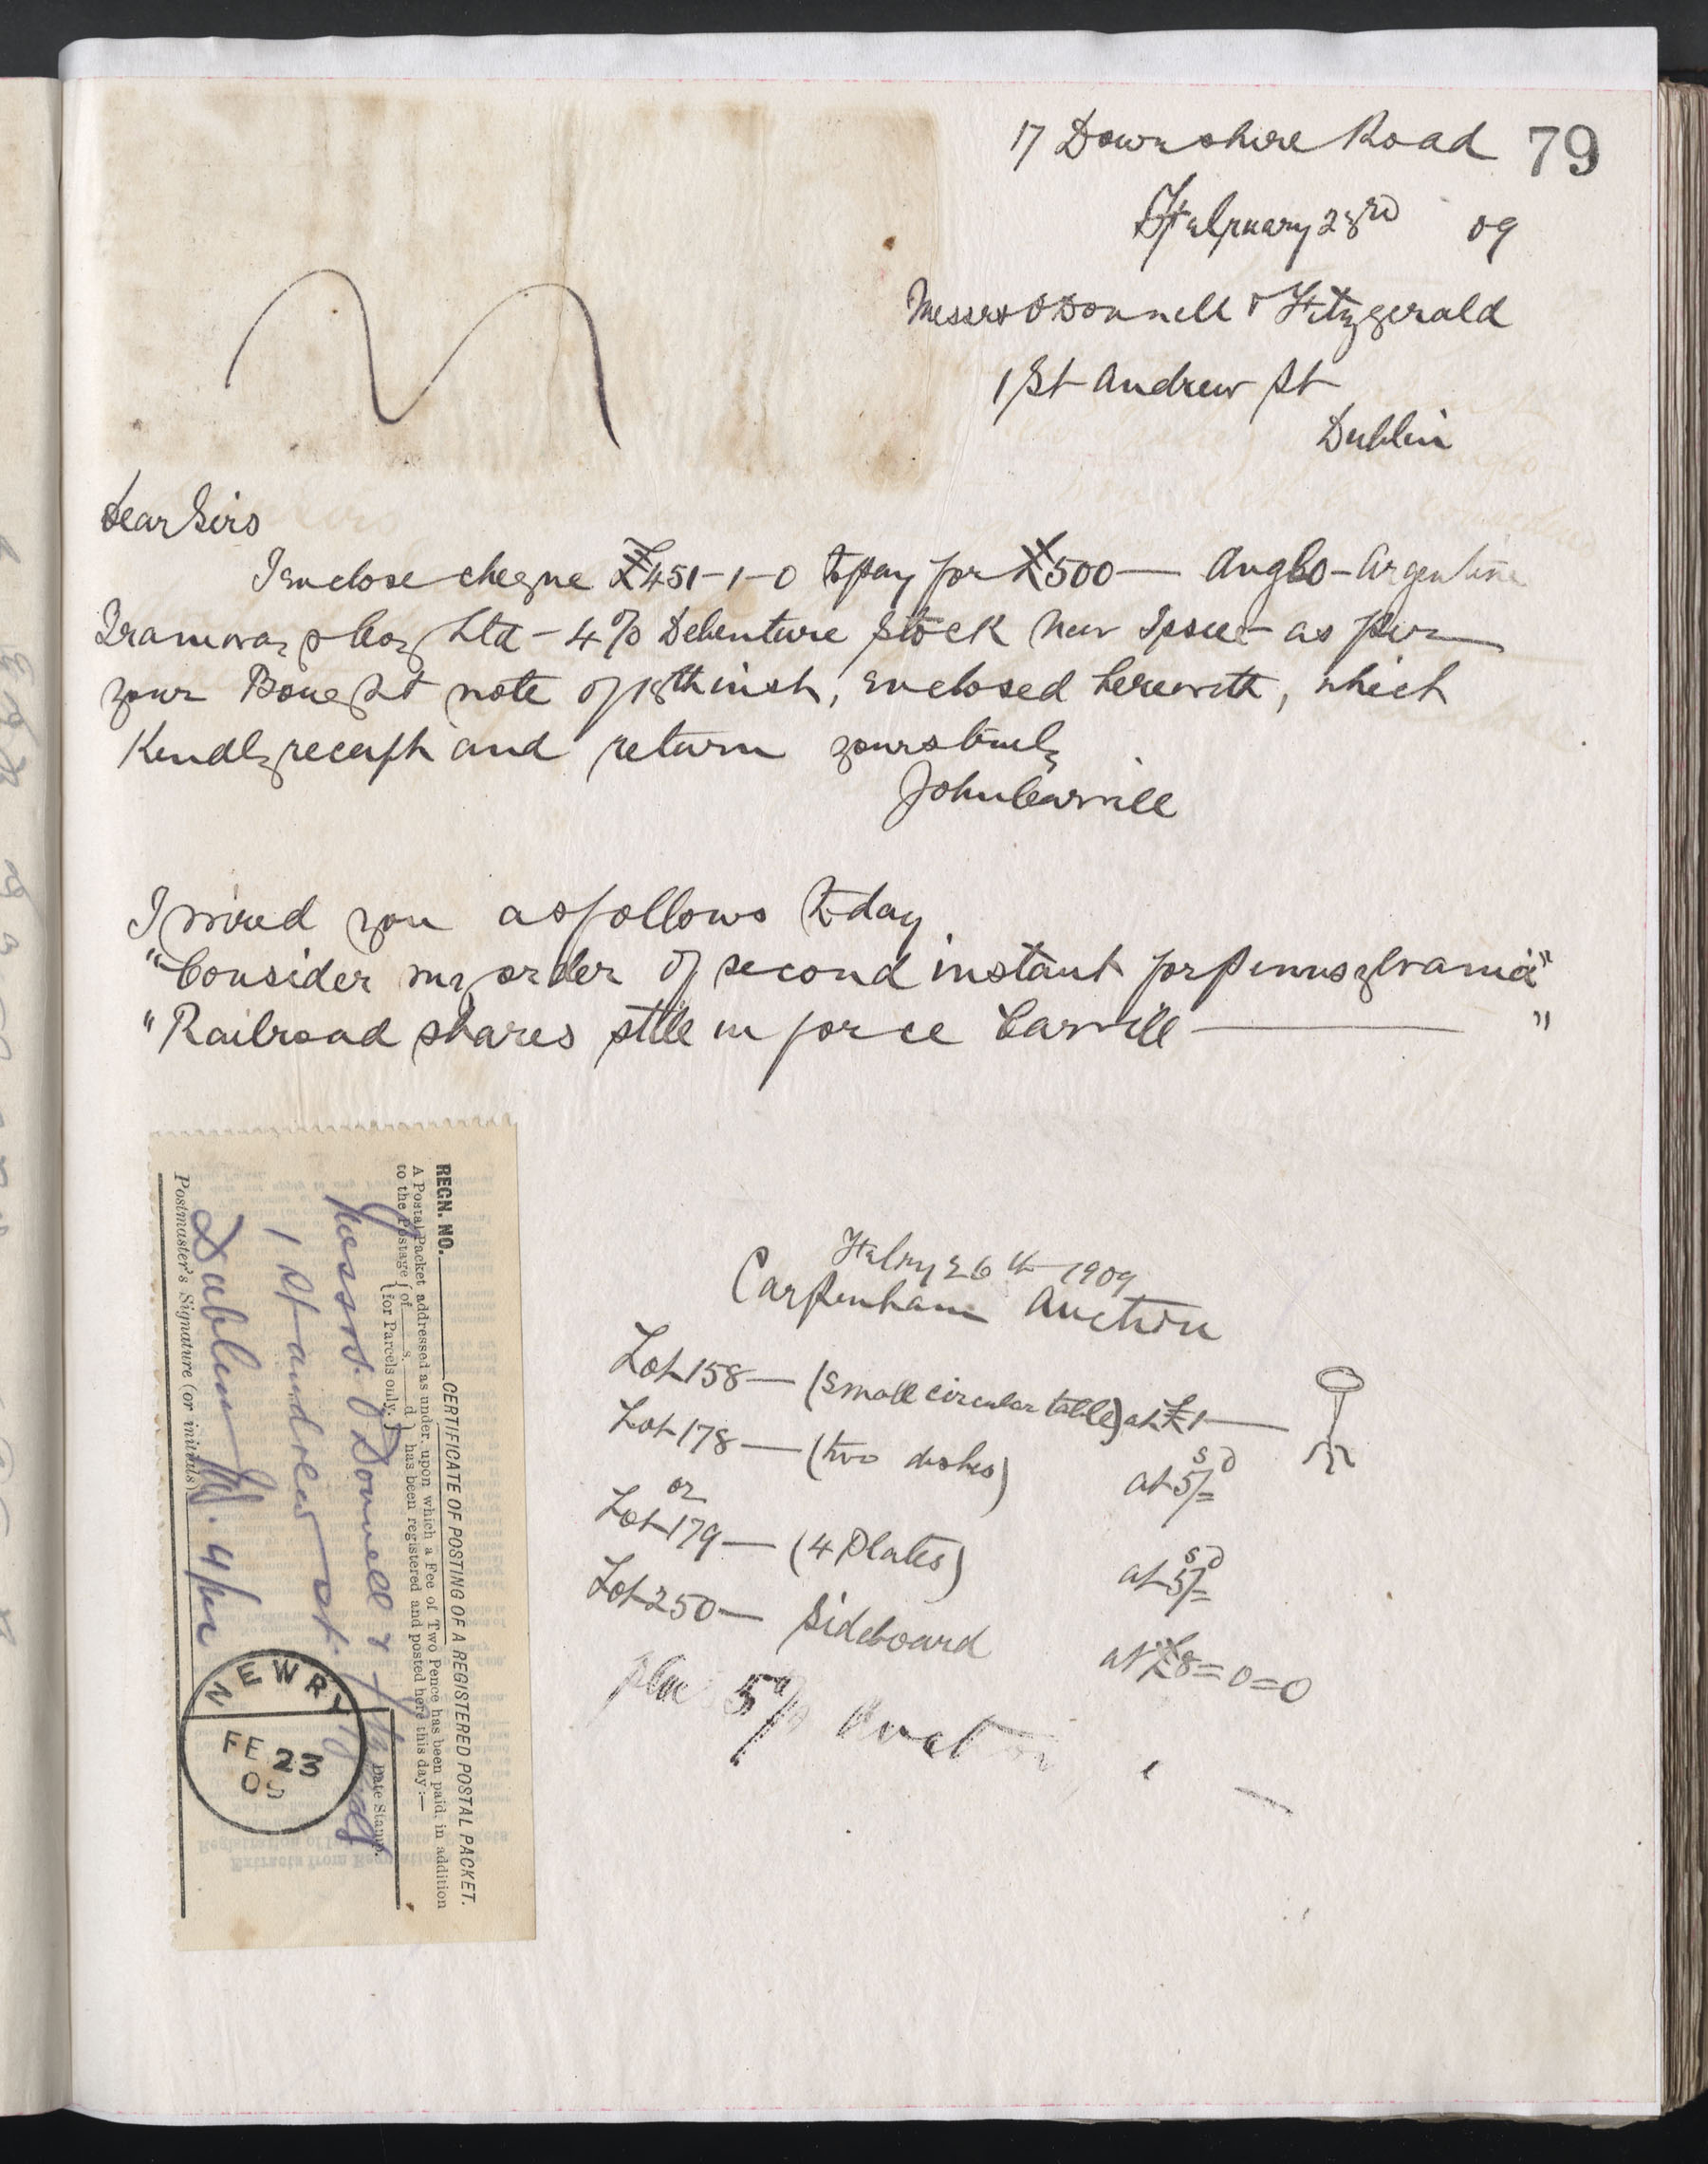 79
17 Downshire Road
February 23rd 09
Messrs O'Donnell & Fitzgerald
1 St Andrew St
Dublin
Dear Sirs
I enclose cheque £451-1-0 to pay for £500 — Anglo-Argentine
Tramways Coy Ltd - 4% Debenture Stock New Issue - as per
your Bought note of 18th inst, enclosed herewith, which
Kindly receipt and return yours truly
John Carvill
I wired you as follows today
"Consider my order of second instant for Pennsylvania"
"Railroad shares still in force Carvill — "
REGN. NO. CERTIFICATE OF POSTING OF A REGISTERED POSTAL PACKET.
A Postal Packet addressed as under, upon which a Fee of Two Pence has been paid, in addition
to the Postage { of s. d. for Parcels only. } has been registered and posted here this day:—
Date Stamp.
Messrs. O'Donnell & Fitzgerald
1 St Andrew St.
Dublin
4/pc
Postmaster's Signature (or initials)
NEWRY
FE 23
09
Feby 26th 1909
Carpenham Auction
Lot 158 — (small circular table) at £1 —
Lot 178 — (two dishes) at 5s/=d
or
Lot 179 — (4 Plates) at 5s/=d
Lot 250 — Sideboard at £8=0=0
plus 5%